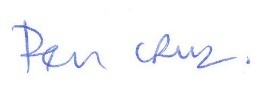 Pen Cruz.